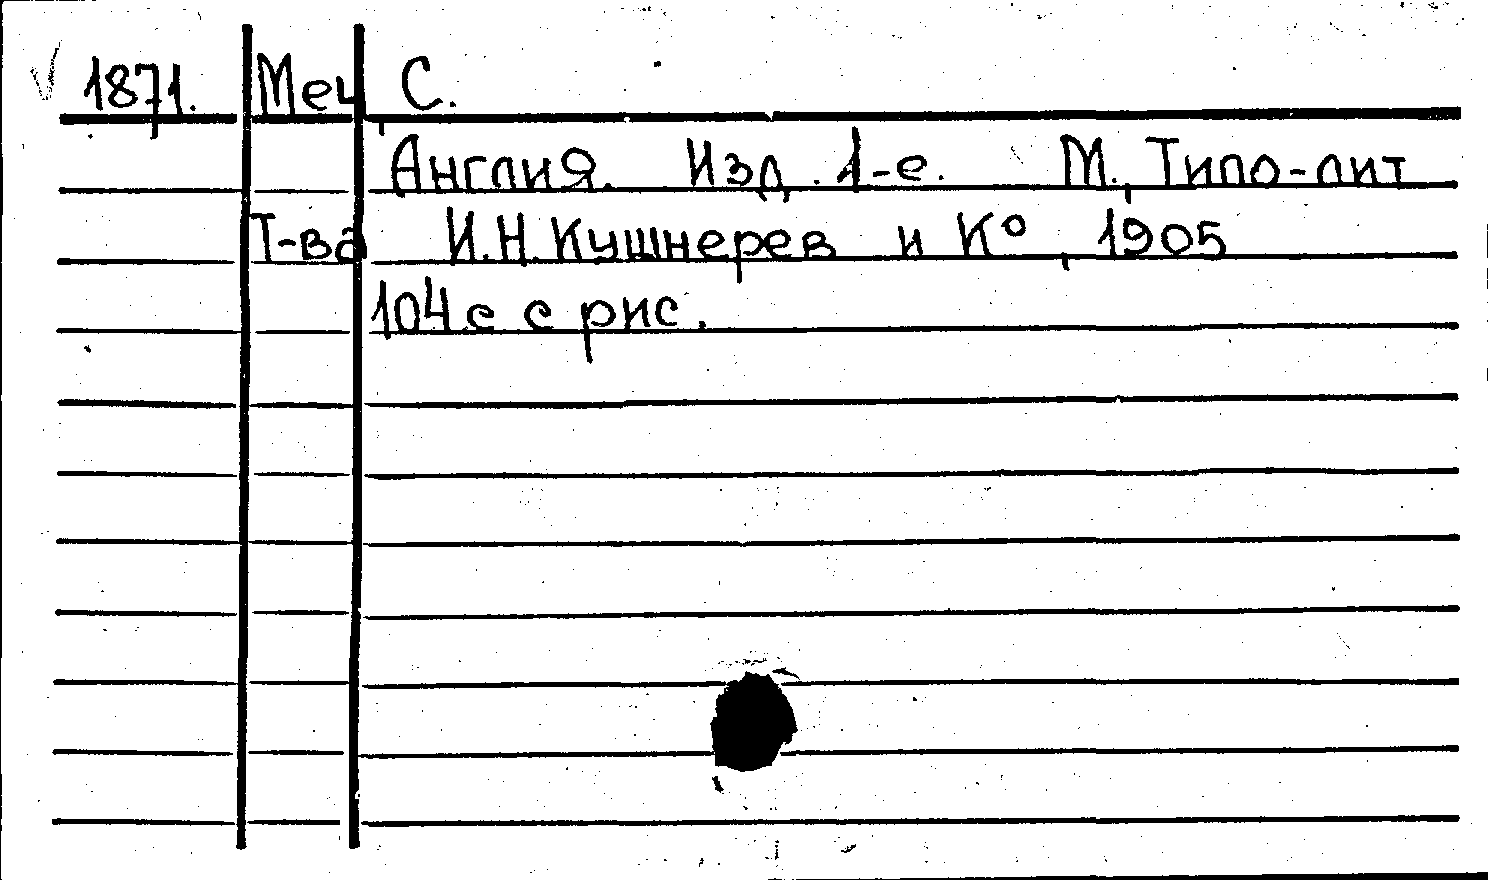 1871. Меч, С.
Англия. Изд. 1-е. М., Типо-лит
Т-ва И.Н.Кушнерев и К°, 1905
104 с с рис.